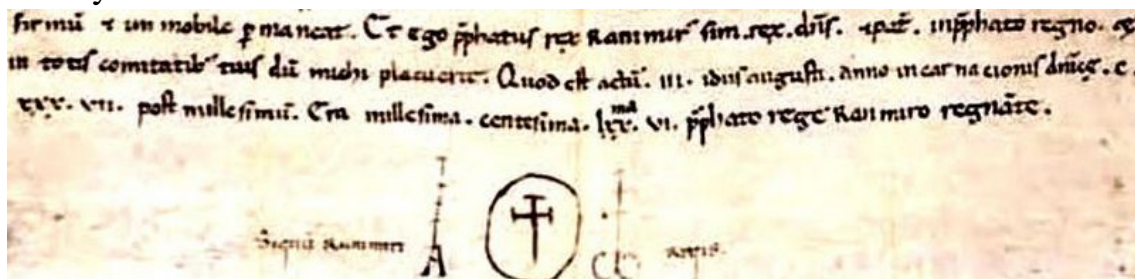 firmũ ⁊ un mobile ꝑ maneat. Et ego p̃phatus rex Ranimir᾽ sim. rex. dñs. ⁊ pat̃. in p̃phato regno. et
in totis comitatib᾽ tuis dũ michi placuerit. Quod est actũ. III. idus augusti. anno incarnacionis dñicę. C.
XXX. VII. post millesimũ. Era millesima. centesima. LXXma. VI. p̃phato rege Ranimiro regnãte.
Signũ Ranimiri A regis.